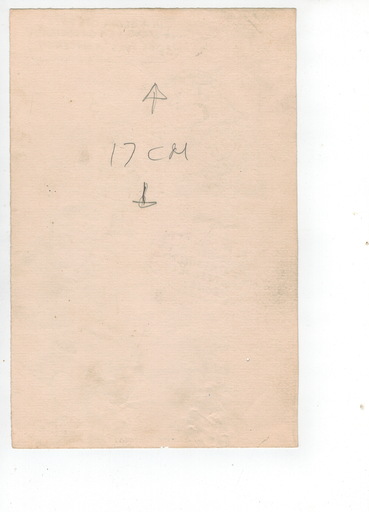 17 CM